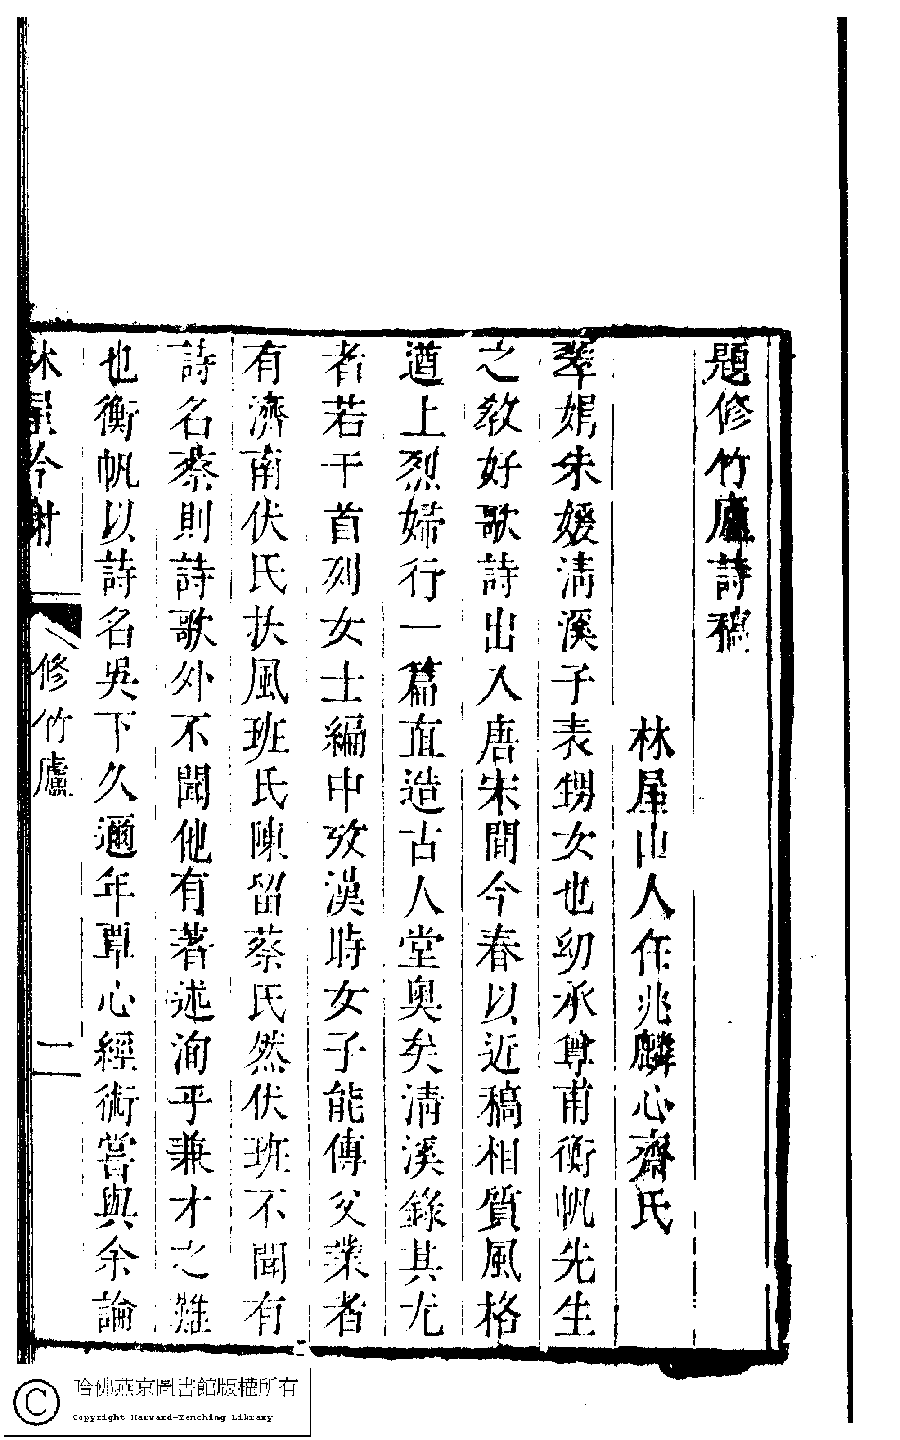 題修竹廬詩稿
林屋山人任兆麟心齋氏
翠娟朱媛淸溪子表甥女也幼承尊甫衡帆先生
之敎好歌詩出入唐宋間今春以近稿相質風格
遒上烈婦行一篇直造古人堂奧矣淸溪錄其尤
者若干首列女士編中攷漢時女子能傳父業者
有濟南伏氏扶風班氏陳留蔡氏然伏班不聞有
詩名蔡則詩歌外不聞他有著述洵乎兼才之難
也衡帆以詩名吳下久邇年覃心經術嘗與余論
林屋吟榭
修竹廬
二
哈佛燕京圖書館版權所有
Copyright Harvard-Yenching Library